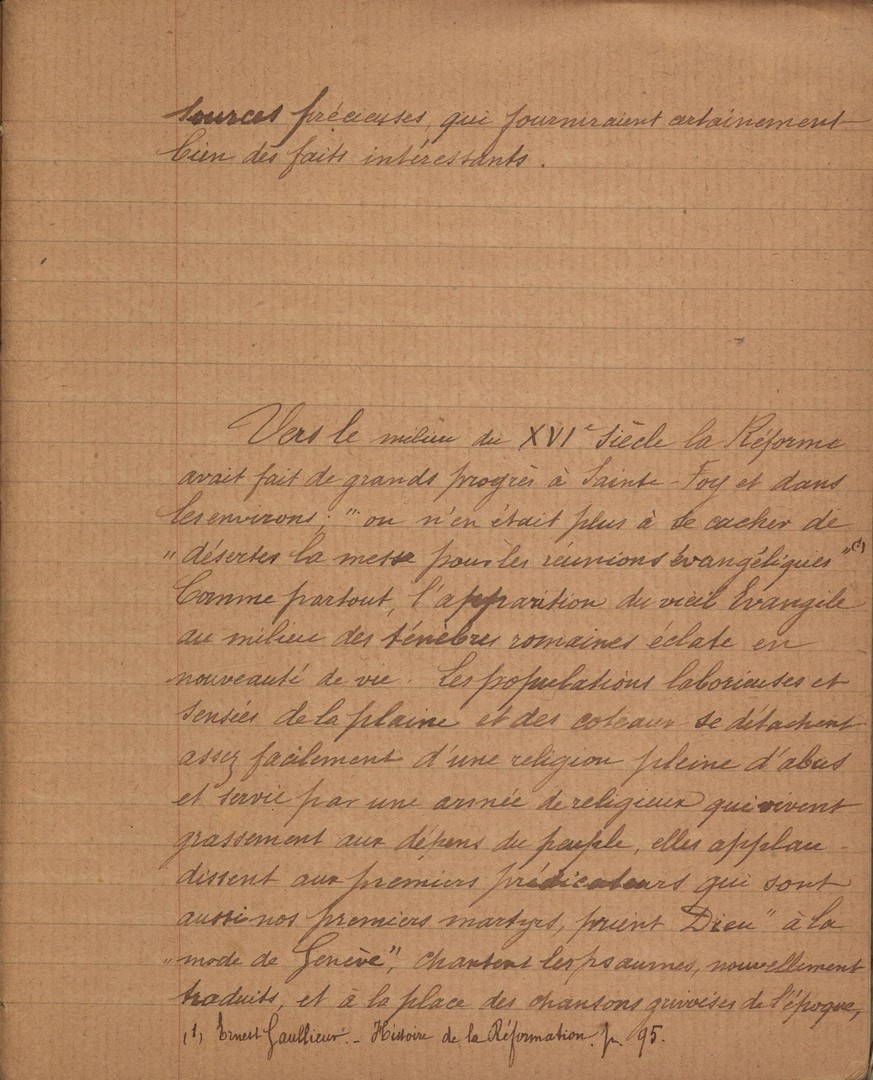 sources précieuses, qui fourniraient certainement
bien des faits intéressants.
Vers le milieu du XVIe siècle la Réforme
avait fait de grands progrès à Sainte-Foy et dans
les environs; "on n'en était plus à se cacher de
"désertes la messe pour les réunions évangéliques" (1)
Comme partout, l'apparition du vieil Evangile
au milieu des ténèbres romaines éclate en
nouveauté de vie. Les populations laborieuses et
sensées de la plaine et des coteaux se détachent
assez facilement d'une religion pleine d'abus
et servie par une armée de religieux qui vivent
grassement aux dépens du peuple, elles applau-
dissent aux premiers prédicateurs qui sont
aussi nos premiers martyrs, prient Dieu "à la
"mode de Genève", chantent les psaumes, nouvellement
traduits, et à la place des chansons grivoises de l'époque,
(1) Ernest Gaullieur. - Histoire de la Réformation. p. 95.